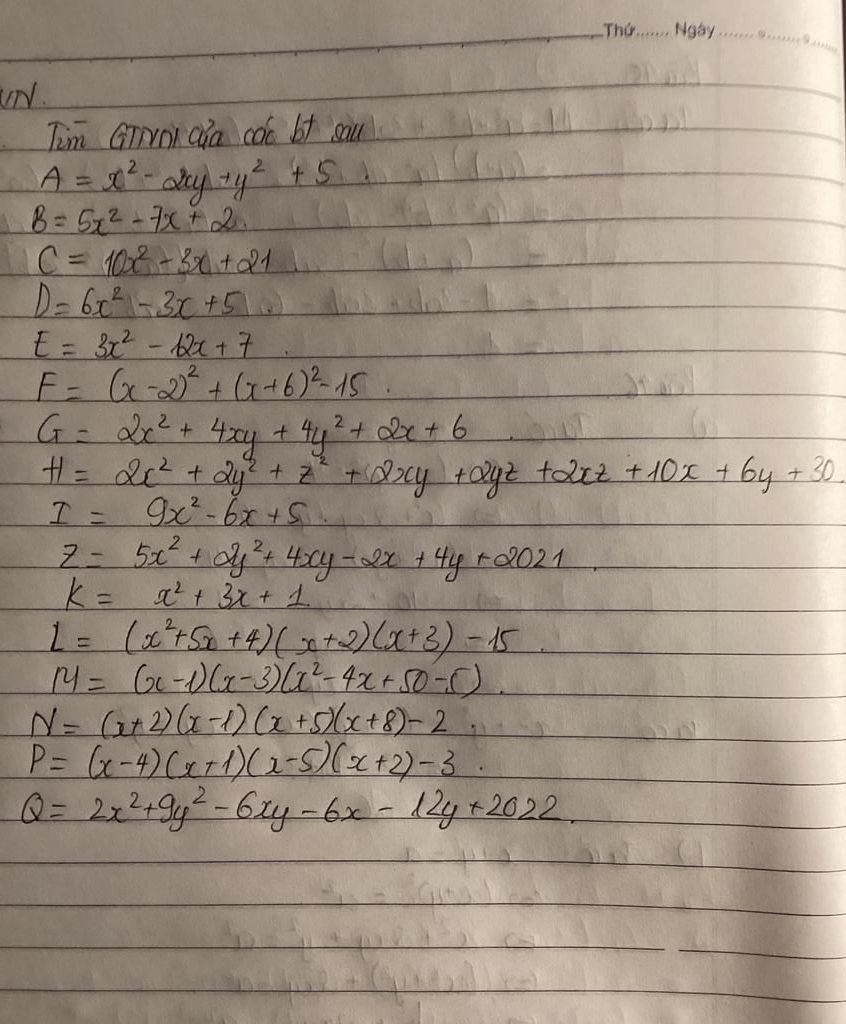 Thứ....... Ngày ...............
VN.
Tìm GTNN của các bt sau
A = x² - 2xy + y² + 5.
B = 5x² - 7x + 2.
C = 10x² - 3x + 21
D = 6x² - 3x + 5.
E = 3x² - 12x + 7.
F = (x - 2)² + (x + 6)² - 15.
G = 2x² + 4xy + 4y² + 2x + 6.
H = 2x² + 2y² + z² + 2xy + 2yz + 2xz + 10x + 6y + 30.
I = 9x² - 6x + 5.
Z = 5x² + 2y² + 4xy - 2x + 4y + 2021.
K = x² + 3x + 1.
L = (x² + 5x + 4)(x + 2)(x + 3) - 15.
M = (x - 1)(x - 3)(x² - 4x + 50 - 5).
N = (x + 2)(x - 1)(x + 5)(x + 8) - 2.
P = (x - 4)(x + 1)(x - 5)(x + 2) - 3.
Q = 2x² + 9y² - 6xy - 6x - 12y + 2022.